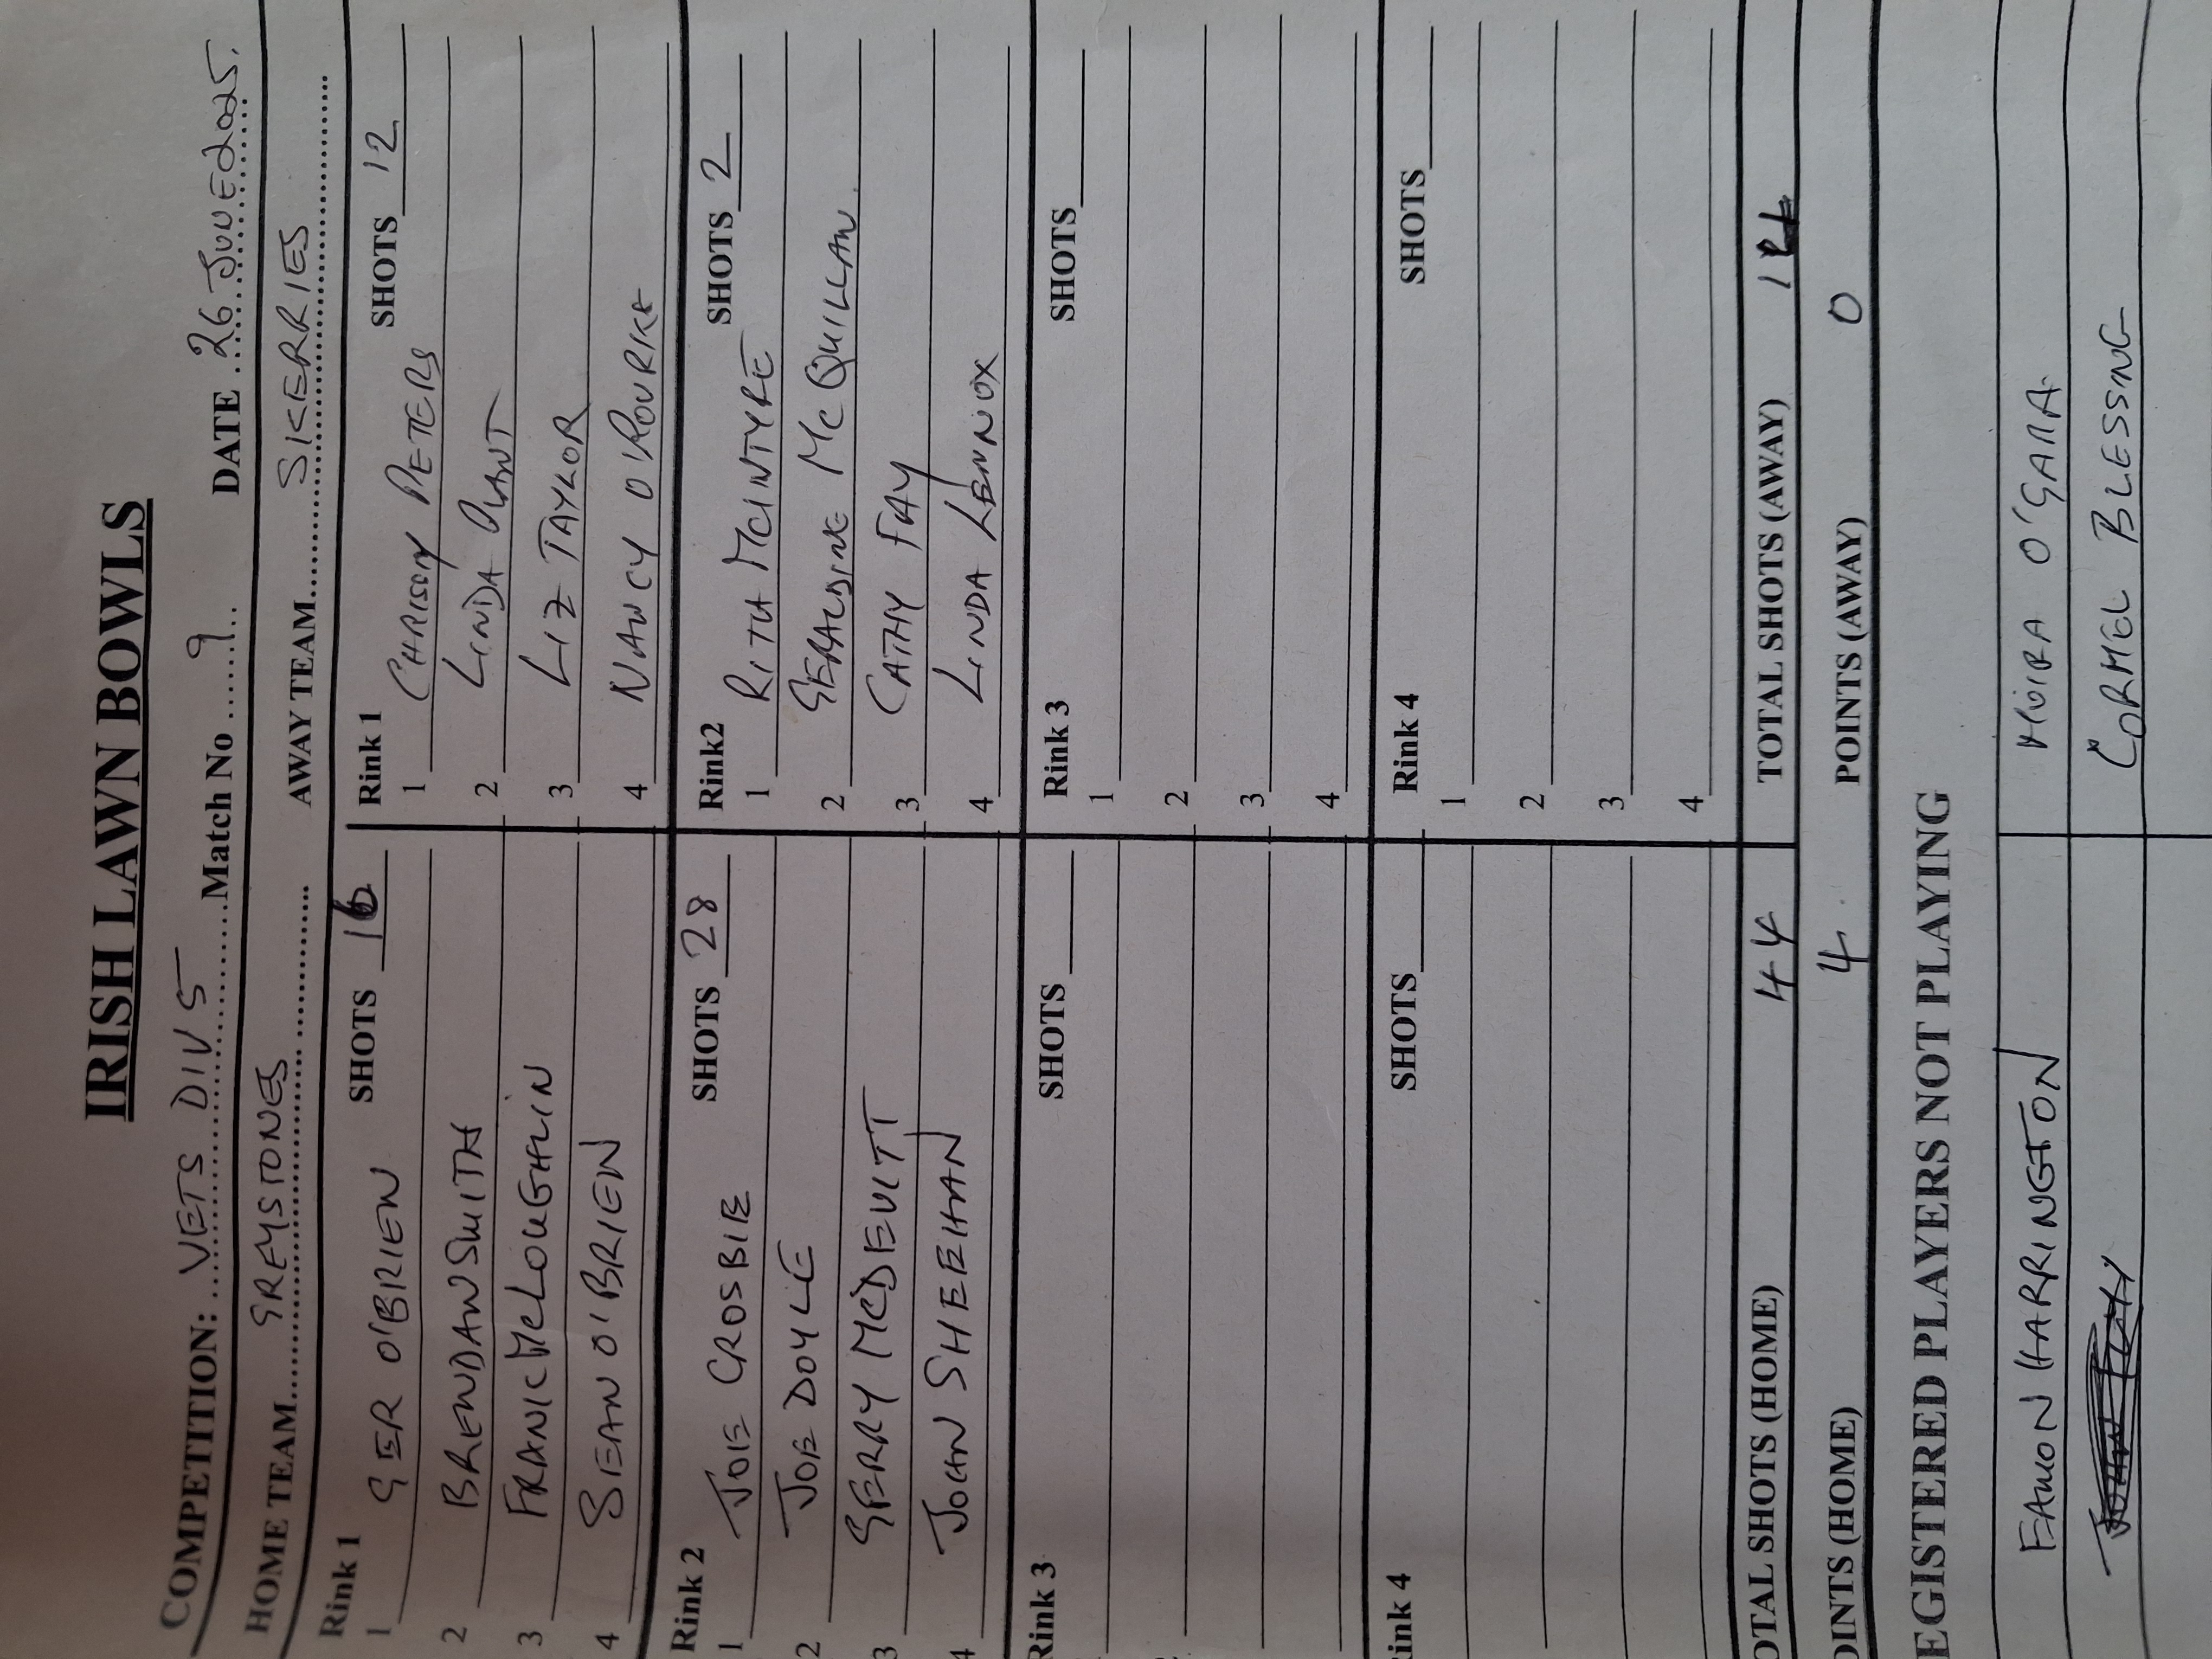 IRISH LAWN BOWLS
COMPETITION: VETS DIV 5 Match No 9 DATE 26 JUNE 2025.
HOME TEAM GREYSTONES AWAY TEAM SKERRIES
Rink 1 SHOTS 16 Rink 1 SHOTS 12
1 GER O'BRIEN 1 CHRISSY PETERS
2 BRENDAN SMITH 2 LINDA PLANT
3 FRANK McLOUGHLIN 3 LIZ TAYLOR
4 SEAN O'BRIEN 4 NANCY O'ROURKE
Rink 2 SHOTS 28 Rink2 SHOTS 2
1 JOE CROSBIE 1 RITA McINTYRE
2 JOE DOYLE 2 GERALDINE McQUILLAN
3 GERRY McDEVITT 3 CATHY FAY
4 JOHN SHEEHAN 4 LINDA LENNOX
Rink 3 SHOTS Rink 3 SHOTS
1 1
2 2
3 3
4 4
Rink 4 SHOTS Rink 4 SHOTS
1
2
3
4
OTAL SHOTS (HOME) 44 TOTAL SHOTS (AWAY) 14
OINTS (HOME) 4 POINTS (AWAY) 0
EGISTERED PLAYERS NOT PLAYING
EAMON HARRINGTON MOIRA O'GARA
CORMEL BLESSING